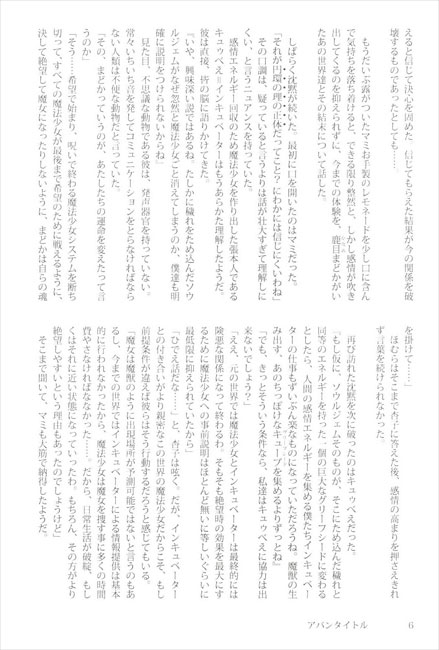 えると信じて決心を固めた。信じてもらえた結果が今の関係を破
壊するものであったとしても……
　もうだいぶ露がついたマミお手製のレモネードを少し口に含ん
で気持ちを落ち着けると、できる限り整然と、しかし感情が吹き
出してくるのを抑えられずに、今までの体験を、鹿目まどかがい
たあの世界達とその結末について話した。
　しばらく沈黙が続いた。最初に口を開いたのはマミだった。
「それが円環の理の正体だってこと？　にわかには信じにくいわね」
　その口調は、疑っていると言うよりは話が壮大すぎて理解しに
くい、と言うニュアンスを持っていた。
　感情エネルギー回収のため魔法少女を作り出した張本人である
キュゥべえ＝インキュベーターはもうあらかた理解したようだ。
彼は直接、皆の脳に語りかけてきた。
『いや、興味深い説ではあるね。たしかに穢れをため込んだソウ
ルジェムがなぜ忽然と魔法少女ごと消えてしまうのか、僕達も明
確に説明をつけられないからね』
　見た目、不思議な動物である彼は、発声器官を持っていない。
常々いちいち音を発してコミュニケーションをとらなければなら
ない人類は不便な動物だと言っていた。
「その、まどかっていうのが、あたしたちの運命を変えたって言
うのか」
「そう……希望で始まり、呪いで終わる魔法少女システムを断ち
切って、すべての魔法少女が最後まで希望のために戦えるように、
決して絶望して魔女になったりしないように、まどかは自らの魂
を掛けて……」
　ほむらはそこまで杏子に答えた後、感情の高まりを押さえきれ
ず言葉を続けられなかった。
　再び訪れた沈黙を次に破ったのはキュゥべえだった。
『もし仮に、ソウルジェムそのものが、そこにため込んだ穢れと
同等のエネルギーを持った一個の巨大なグリーフシードに変わる
としたら、人間の感情エネルギーを集める僕たちインキュベー
ターの仕事もずいぶん楽なものになっていただろうね。魔獣の生
み出す、あのちっぽけなキューブを集めるよりずっとね』
「でも、きっとそういう条件なら、私達はキュゥべえに協力は出
来ないでしょう？」
「ええ、元の世界では魔法少女とインキュベーターは最終的には
険悪な関係になって終わるわ。そもそも絶望時の効果を最大にす
るために魔法少女への事前説明はほとんど無いに等しいぐらいに
最低限に抑えられていたから」
「ひでえ話だな……」と、杏子は呟く。だが、インキュベーター
との付き合いがより親密なこの世界の魔法少女だからこそ、もし
前提条件が違えば彼らはそう行動するだろうと感じてもいる。
「魔女は魔獣のように出現場所が予測可能ではないと言うのもあ
るし、今までの世界ではインキュベーターによる情報提供は基本
的に行われなかったから、魔法少女は魔女を捜す事に多くの時間
費やさなければなかった……。だから、日常生活が破綻、もし
くはそれに近い状態になっていったわ。もちろん、その方がより
絶望しやすいという理由もあったのでしょうけど」
　そこまで聞いて、マミも大筋で納得したようだ。
アバンタイトル
6